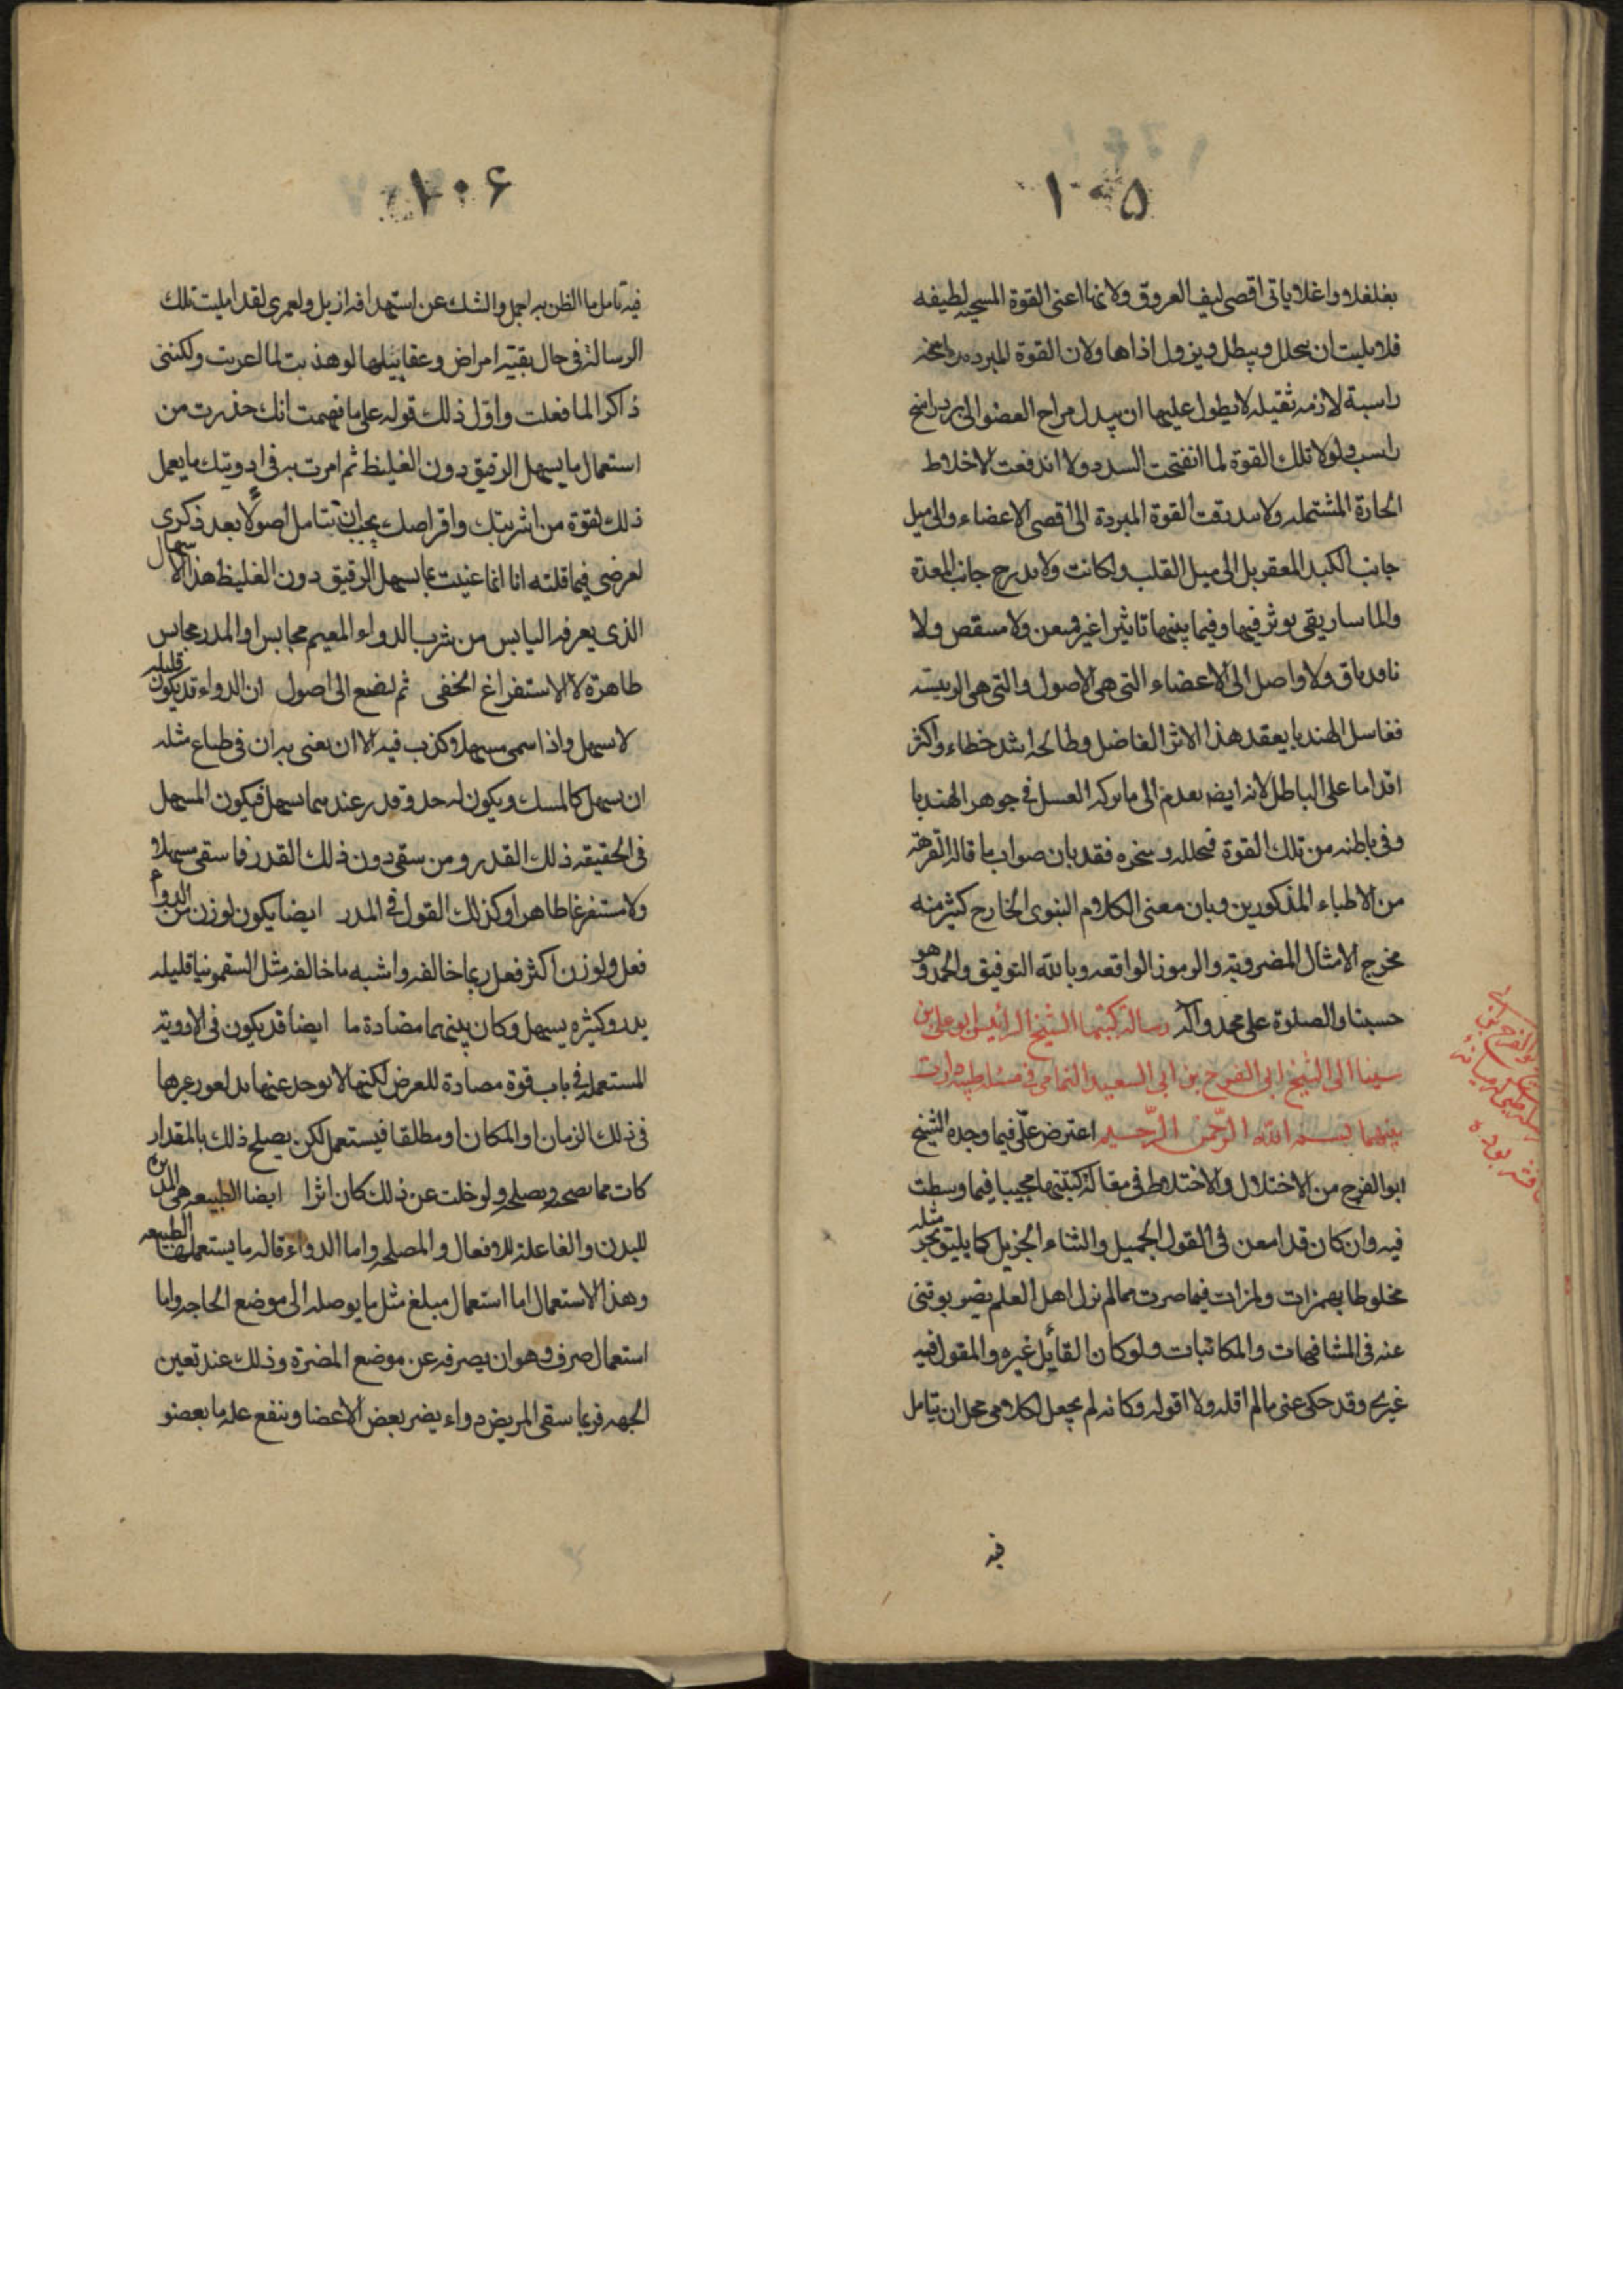 ١٠٥
تغلغلا واغلا ياتى اقصى ليف العروق ولانها اعنى القوة المسخنه لطيفه
فلا يلبث ان يتحلل ويبطل ويزول اذاها ولان القوة المبرده
راسبة لازمه ثقيله لا يطول عليها ان يبدل مزاج العضو الى برد راسخ
راسب ولولا تلك القوة لما انفتحت السدد ولا اندفعت الاخلاط
الحارة المشتمله ولا القوة المبردة الى اقصى الاعضاء والى ميل
جانب الكبد المقعر بل الى ميل القلب ولكانت جانب المعدة
والماساريقى يوثر فيها وفيما بينها تاثيرا غير ممعن ولا ولا
ولا واصل الى الاعضاء التى هى الاصول والتى هى الرييسه
فغاسل الهندبا يعقد هذا الاثر الفاضل وطابخه اشد خطاء واكثر
اقداما على الباطل لانه ايضا يعدم الى ما يزكه الغسل فى جوهر الهندبا
وفى باطنه من تلك القوة فحلله وبخره فقد بان صواب ما قاله الفرقة
من الاطباء المذكورين وبان معنى الكلام النبوى الخارج كثير منه
مخرج الامثال المضروبة والرموز الواقعه وبالله التوفيق والحمد وهو
حسبنا والصلوة على محمد وآله رسالة كتبها الشيخ الرئيس ابو على ابن
سينا الى الشيخ ابى الفرج بن ابى السعيد اليمامى فى مسئلة طبيه دارت
بينهما بسم الله الرحمن الرحيم اعترض على فيما وجده الشيخ
ابو الفرج من الاختلال والاختلاط فى مقالة كتبتها مجيبا فيما وسطت
فيه وان كان قد امعن فى القول الجميل والثناء الجزيل كما يليق بحر مثله
مخلوطا بهمزات ولمزات فيما صرت مما لم نزل اهل العلم
عنه فى المشافهات والمكاتبات ولو كان القائل غيره والمقول فيه
غيرى وقد حكى عنى ما لم اقله ولا اقوله وكانه لم يجعل لكلامى محل ان يتامل
فيه
١٠٦
فيه تامل ما الظن به اجمل والشك عن ازيل ولعمرى لقد امليت تلك
الرسالة فى حال بقية امراض لو هذبت لما لعربت ولكننى
ذاكر لما فعلت واول ذلك قوله على ما فهمت انك حذرت من
استعمال ما يسهل الرقيق دون الغليظ ثم امرت به فى ادويتك ما يعمل
ذلك لقوة من اشربتك واقراصك يجب ان تتامل اصولا بعد ذكرى
لغرضى فيما قلته انا انما عنيت بما يسهل الرقيق دون الغليظ هذا الاسهال
الذى يعرفه الناس من شرب الدواء المقيم مجالس او المدر مجالس
ظاهرة لا الاستفراغ الخفى ثم لنضع الى اصول ان الدواء قد يكون قليله
لا يسهل واذا سمى مسهلا كذب فيه الا ان يعنى به ان فى طباع مثله
ان يسهل كالمسك ويكون له حد وقدر عندهما يسهل فيكون المسهل
فى الحقيقه ذلك القدر ومن سقى دون ذلك القدر فما سقى مسهلا
ولا مستفرغا ظاهرا وكذلك القول فى المدر ايضا يكون لوزن من الدواء
فعل ولوزن اكثر فعل ربما خالفه واشبه ما خالفه مثل السقمونيا قليله
يدر وكثيره يسهل وكان بينهما مضادة ما ايضا قد يكون فى الادوية
المستعمله فى باب قوة مضادة للغرض لكنها لا يوجد عنها
فى ذلك الزمان او المكان او مطلقا فيستعمل لكن يصلح ذلك بالمقدار
كانت مما يصحبه ويصلحه ولو خلت عن ذلك كان اثرا ايضا الطبيعه هى المدبرة
للبدن والفاعلة للافعال والمصلحه واما الدواء فآله ما يستعملها الطبيعه
وهذا الاستعمال اما استعمال مبلغ مثل ما يوصله الى موضع الحاجه واما
استعمال صرف وهو ان يصرفه عن موضع المضرة وذلك عند تعين
الجهه فربما سقى المريض دواء يضر بعض الاعضا وينفع عله ما بعضو